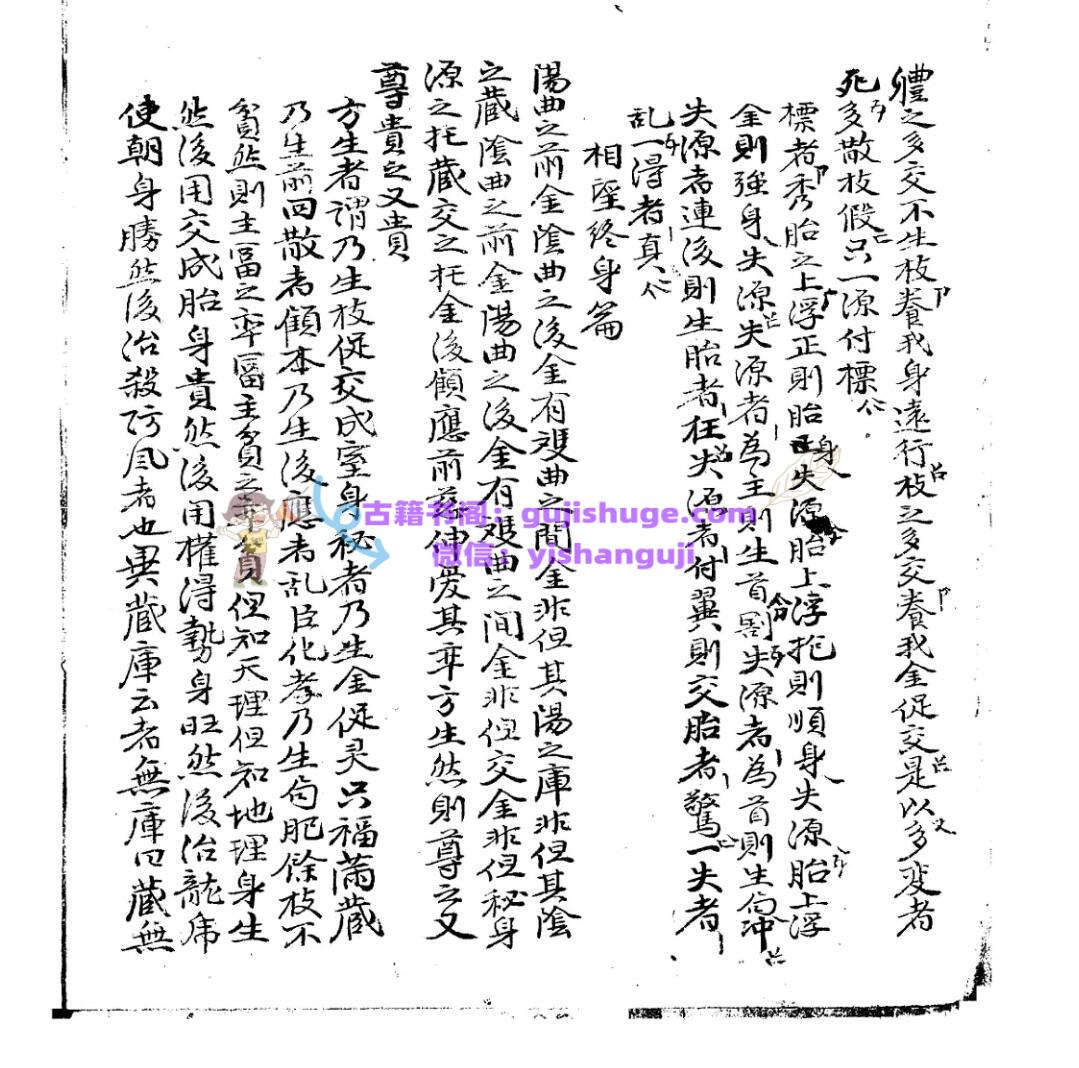 體之多交不生枝養我身遠行枝之多交養我金促交是以多変者
死多散枝假只一源付標
標者秀胎之上浮正則胎身失源胎上浮抱則順身失源胎上浮
金則強身失源失源者為主則生首割失源者為首則生句冲
失源者連後則生胎者枉失源者付翼則交胎者驚一失者
乱一得者真
相望終身篇
陽曲之前金陰曲之後金有雙曲之間金非但其陽之庫非但其陰
之藏陰曲之前金陽曲之後金有雙曲之間金非但交金非但秘身
源之托藏交之托金後顧應前 使愛其弃方生然則尊之又
尊貴之又貴
方生者謂乃生枝促交成室身秘者乃生金促灵只福滿藏
乃生前回散者顧本乃生後應者乱臣化孝乃生句肥餘枝不
貧然則主富之弃富主貧之 貧但知天理但知地理身生
然後用交成胎身貴然後用權得勢身旺然後治龍席
使朝身勝然後治殺防風者也異藏庫云者無庫曰藏無
古籍书阁：gujishuge.com
微信：yishanguji